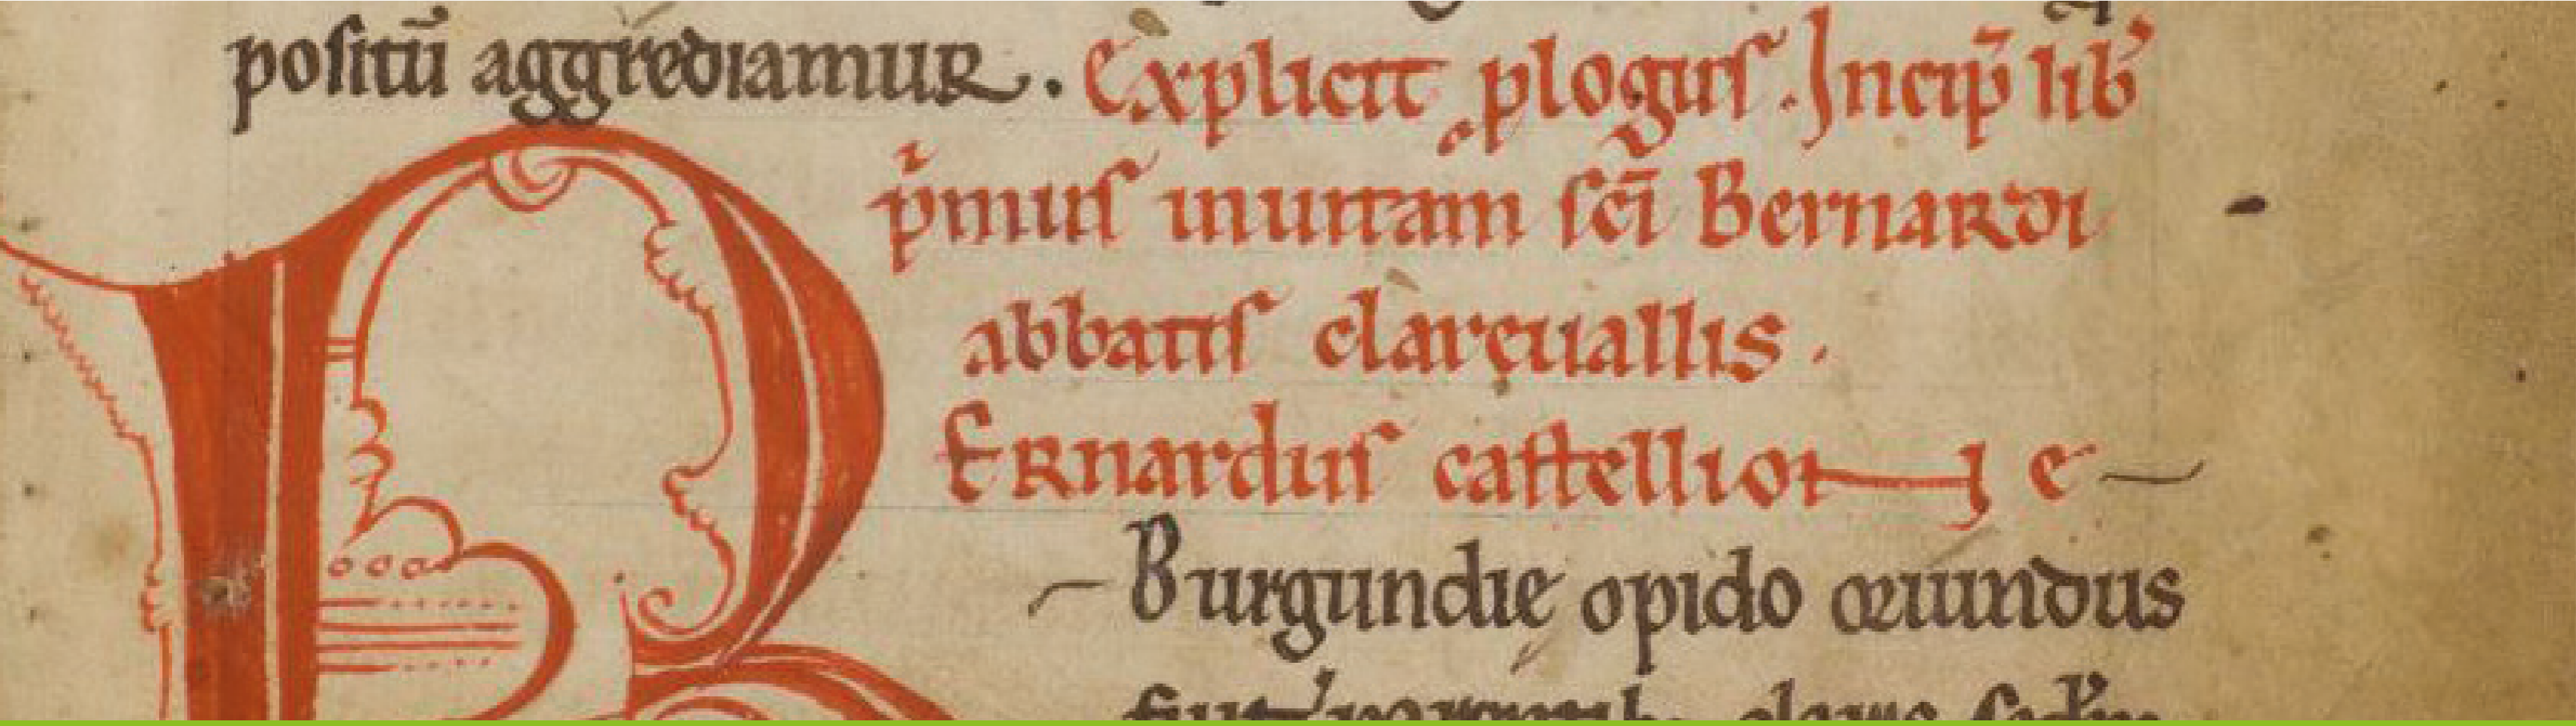 positū aggrediamur. Explicit ꝓlogus. Incip̄ lib'
p̍mus inuitam sc̄i Bernardi
abbatis clareuallis.
BERnardus castellionis e
Burgundie opido oriundus